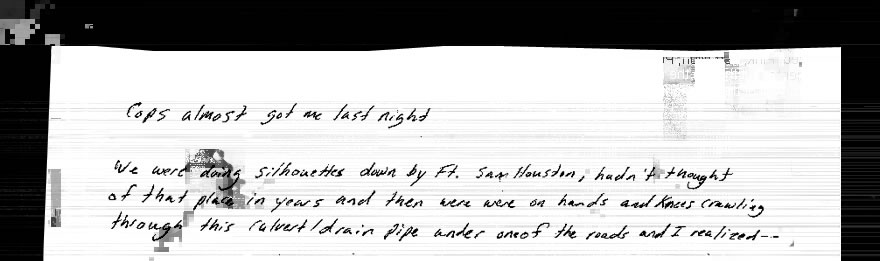 Cops almost got me last night
We were doing silhouettes down by Ft. Sam Houston, hadn't thought
of that place in years and then were were on hands and knees crawling
through this culvert/drain pipe under one of the roads and I realized--